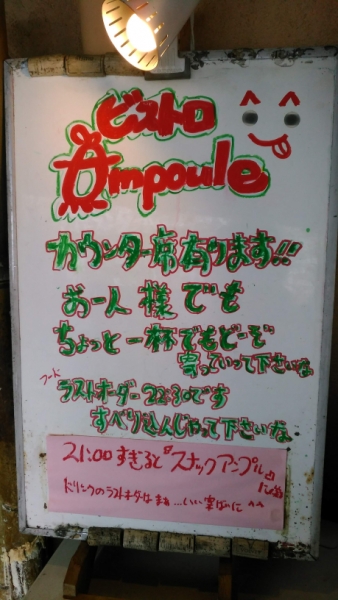 ビストロ
Ampoule
カウンター席あります!!
お一人様でも
ちょっと一杯でもどーぞ
寄っていって下さいな
フード
ラストオーダー22:30です
すべり込んじゃって下さいな
21:00すぎると『スナックアンプル』
になる
ドリンクのラストオーダーはまぁ…いい案ばいに^^